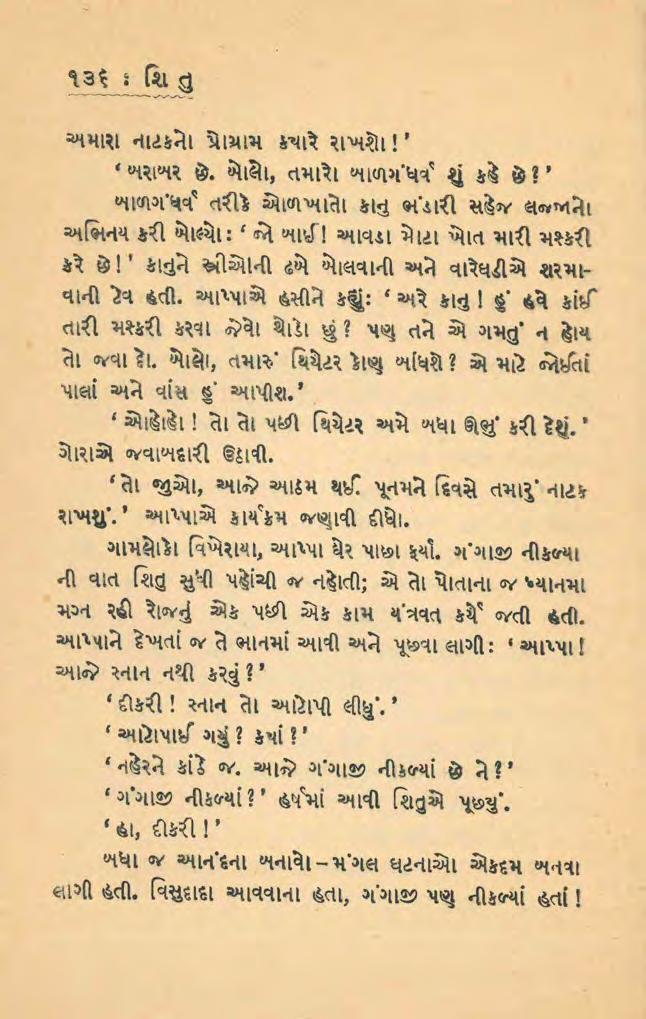 ૧૩૬ : શિ તુ
અમારા નાટકનો પ્રોગ્રામ ક્યારે રાખશો !’
‘ બરાબર છે. બોલો, તમારો બાળગંધર્વ શું કહે છે ?’
બાળગંધર્વ તરીકે ઓળખાતો કાનુ ભંડારી સહેજ લજ્જાનો
અભિનય કરી બોલ્યો : ‘ જો બાઈ! આવડા મોટા ખોત મારી મશ્કરી
કરે છે !' કાનુને સ્ત્રીઓની ઢબે બોલવાની અને વારેઘડીએ શરમા-
વાની ટેવ હતી. આપ્પાએ હસીને કહ્યું: ‘ અરે કાનુ ! હું હવે કાંઈ
તારી મશ્કરી કરવા જેવો થોડો છું ? પણ તને એ ગમતું ન હોય
તો જવા દો. બોલો, તમારું થિયેટર કોણ બાંધશે ? એ માટે જોઈતાં
પાલાં અને વાંસ હું આપીશ.’
‘ ઓહોહો ! તો તો પછી થિયેટર અમે બધા ઊભું કરી દેશું. ’
ગોરાએ જવાબદારી ઉઠાવી.
‘તો જુઓ, આજે આઠમ થઈ. પૂનમને દિવસે તમારું નાટક
રાખશું.’ આપ્પાએ કાર્યક્રમ જણાવી દીધો.
ગામલોકો વિખેરાયા, આપ્પા ઘેર પાછા ફર્યા. ગંગાજી નીકળ્યા
ની વાત શિતુ સુધી પહોંચી જ નહોતી; એ તો પોતાના જ ધ્યાનમા
મગ્ન રહી રોજનું એક પછી એક કામ યંત્રવત કર્યે જતી હતી.
આપ્પાને દેખતાં જ તે ભાનમાં આવી અને પૂછવા લાગી : ‘ આપ્પા !
આજે સ્નાન નથી કરવું ?’
‘ દીકરી ! સ્નાન તો આટોપી લીધું.’
‘ આટોપાઈ ગયું ? ક્યાં ?’
‘ નહેરને કાંઠે જ. આજે ગંગાજી નીકળ્યાં છે ને ?’
‘ ગંગાજી નીકળ્યાં ?’ હર્ષમાં આવી શિતુએ પૂછ્યું.
‘ હા, દીકરી !’
બધા જ આનંદના બનાવો – મંગલ ઘટનાઓ એકદમ બનવા
લાગી હતી. વિસુદાદા આવવાના હતા, ગંગાજી પણ નીકળ્યાં હતાં !